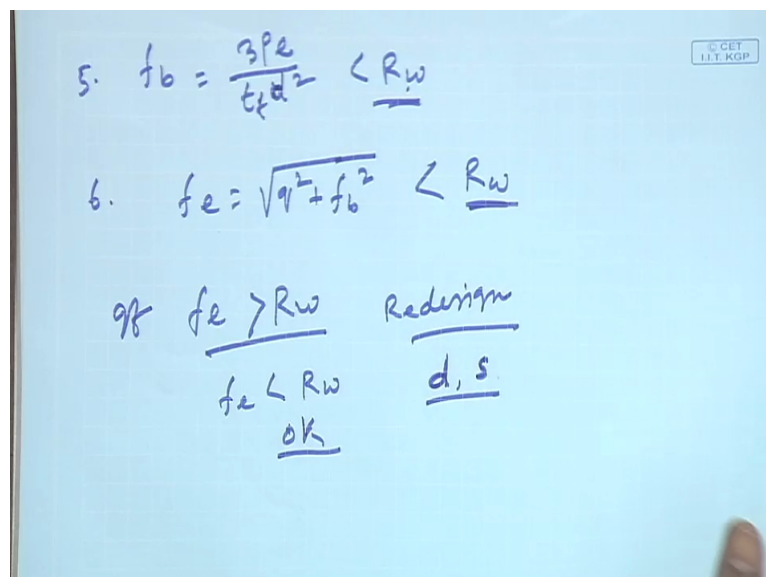 © CET
I.I.T. KGP
5. fb = 3Pe / tt d² < Rw
6. fe = √(q² + fb²) < Rw
If fe > Rw Redesign
fe < Rw d, s
OK